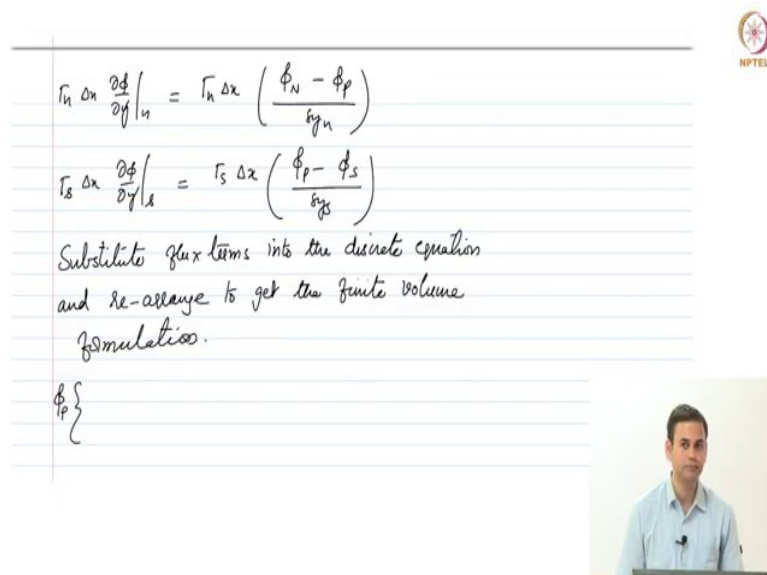 NPTEL
Γn Δx ∂ϕ/∂y|n = Γn Δx ( (ϕN − ϕP) / δyn )
Γs Δx ∂ϕ/∂y|s = Γs Δx ( (ϕP − ϕS) / δys )
Substitute flux terms into the discrete equation
and re-arrange to get the finite volume
formulation.
ϕP {